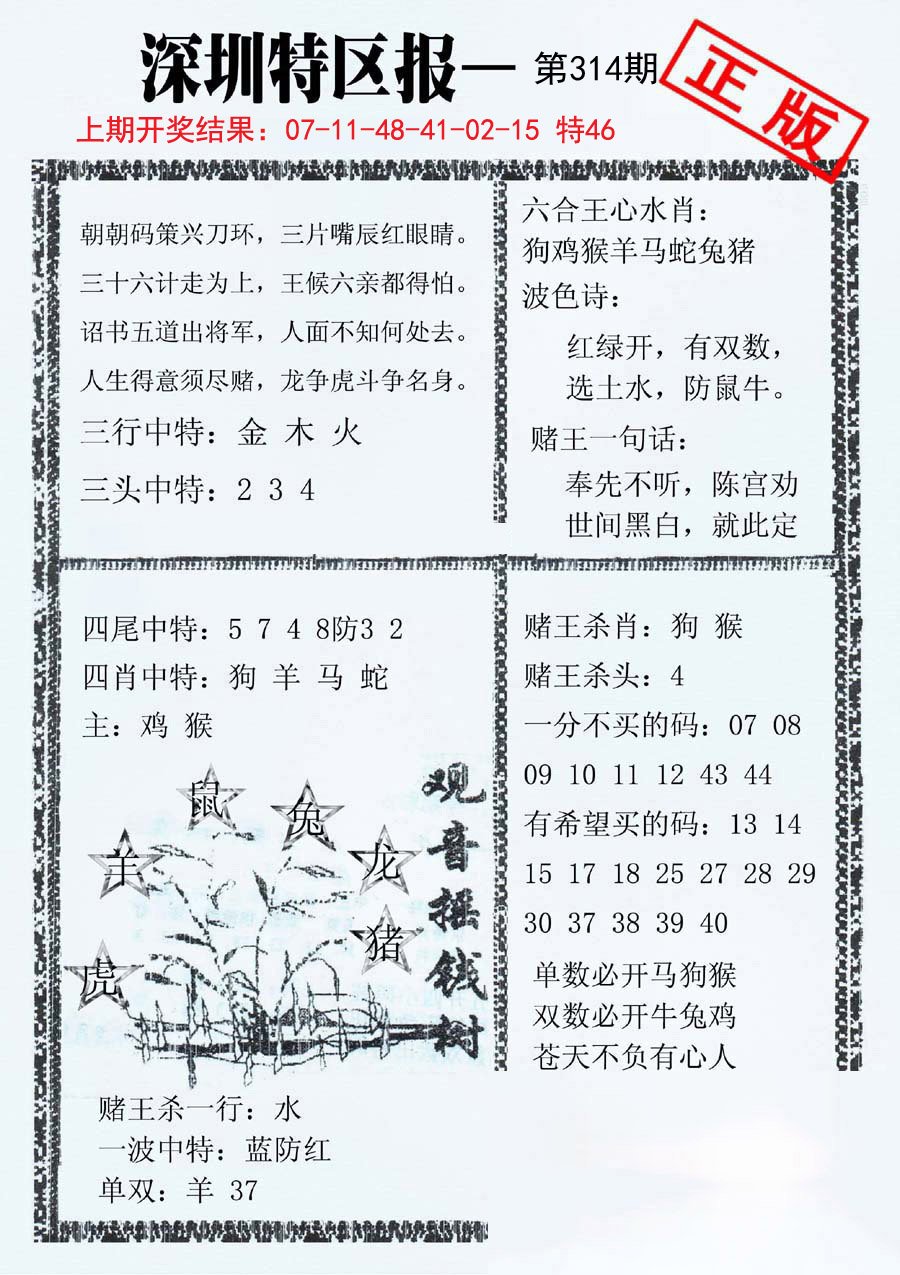 深圳特区报— 第314期
正版
上期开奖结果：07-11-48-41-02-15 特46
朝朝码策兴刀环，三片嘴辰红眼睛。
三十六计走为上，王候六亲都得怕。
诏书五道出将军，人面不知何处去。
人生得意须尽赌，龙争虎斗争名身。
三行中特：金 木 火
三头中特：2 3 4
六合王心水肖：
狗鸡猴羊马蛇兔猪
波色诗：
红绿开，有双数，
选土水，防鼠牛。
赌王一句话：
奉先不听，陈宫劝
世间黑白，就此定
四尾中特：5 7 4 8防3 2
四肖中特：狗 羊 马 蛇
主：鸡 猴
鼠
兔
羊
龙
猪
虎
观音摇钱树
赌王杀一行：水
一波中特：蓝防红
单双：羊 37
赌王杀肖：狗 猴
赌王杀头：4
一分不买的码：07 08
09 10 11 12 43 44
有希望买的码：13 14
15 17 18 25 27 28 29
30 37 38 39 40
单数必开马狗猴
双数必开牛兔鸡
苍天不负有心人